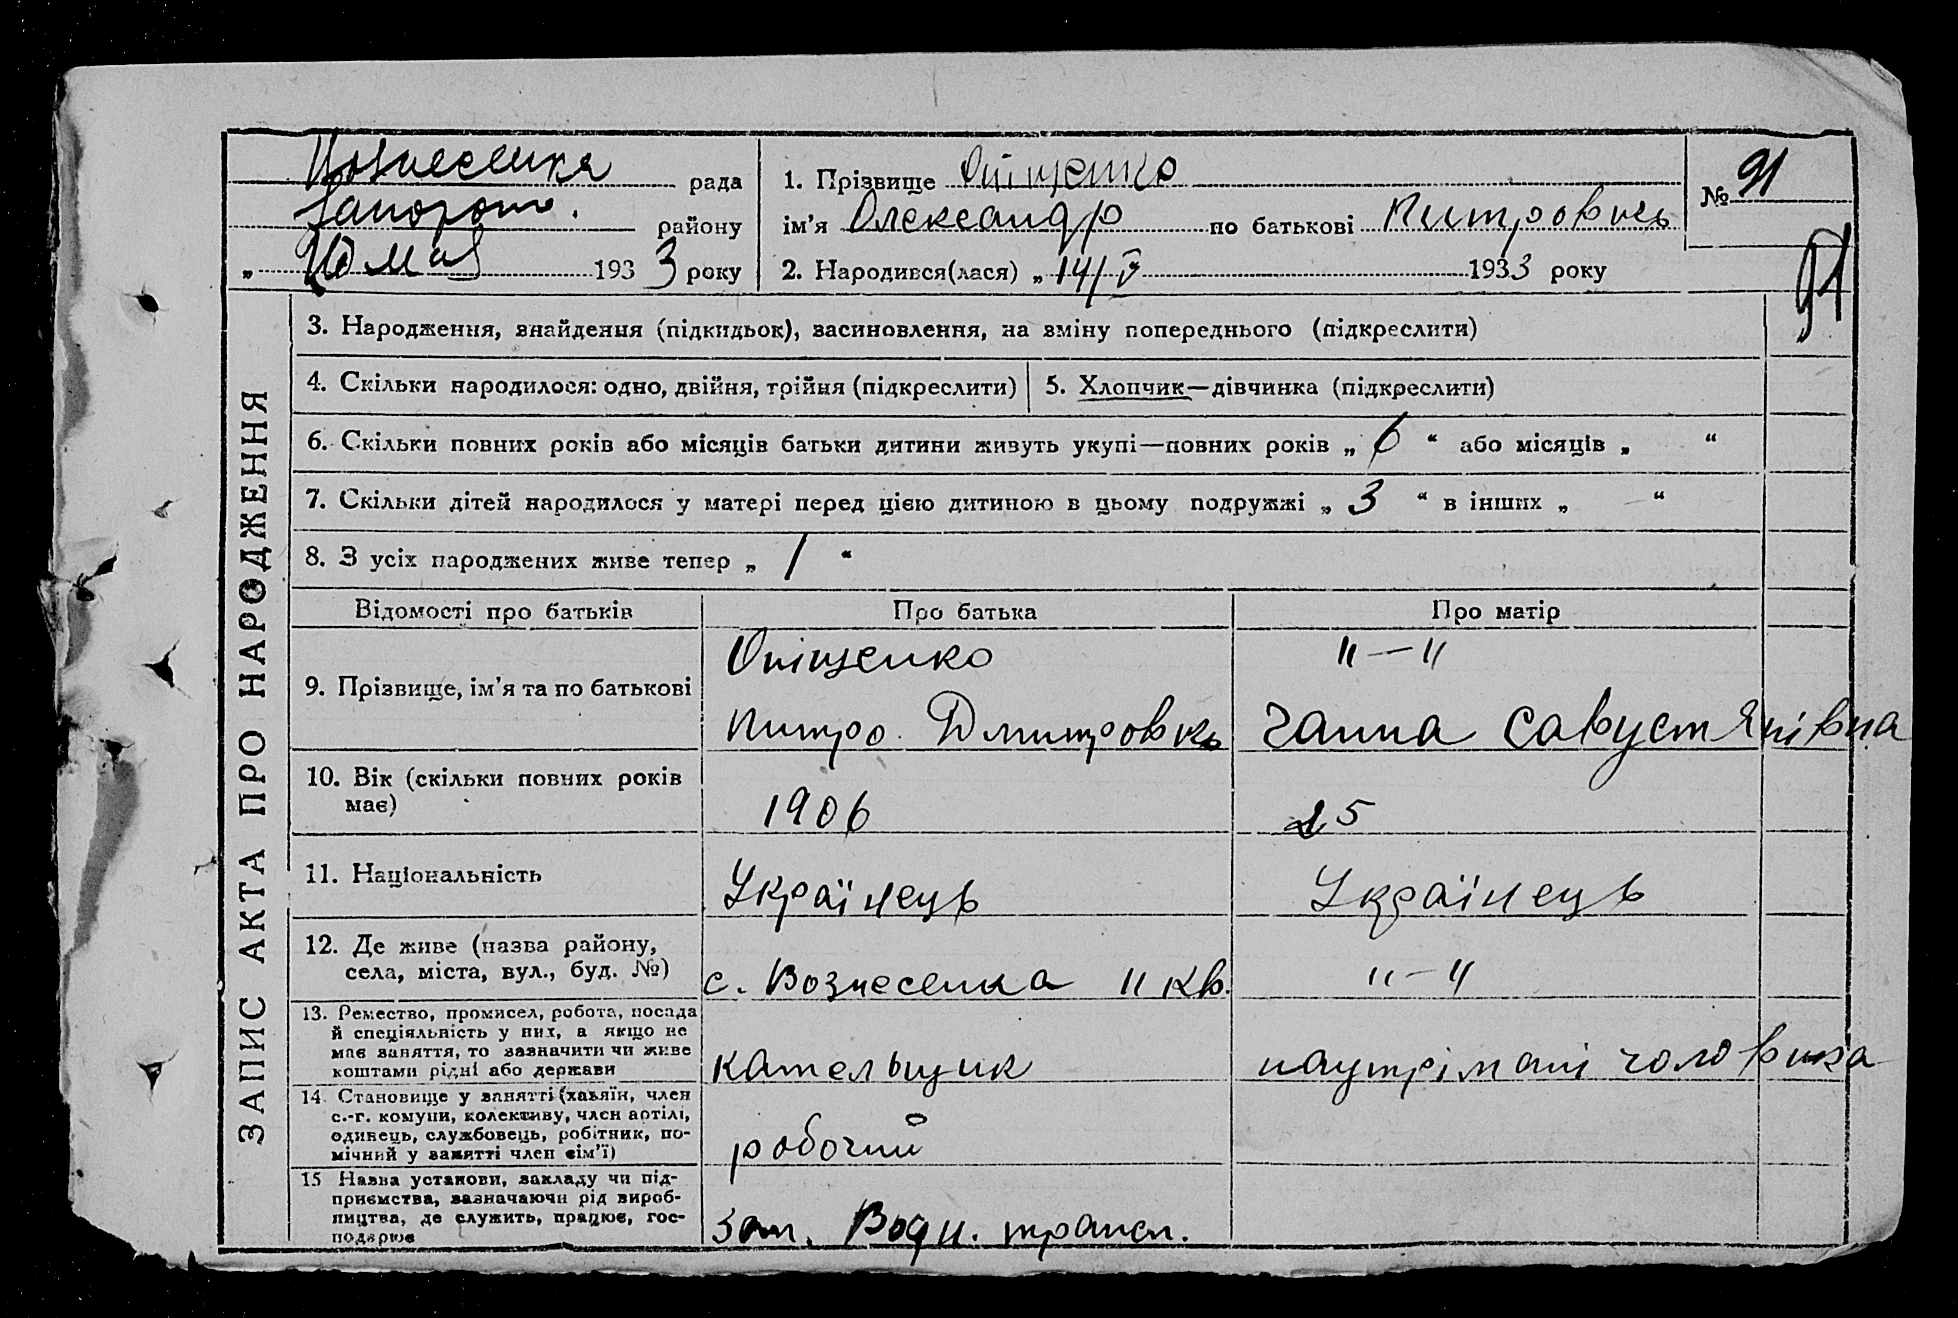 Вознесенка рада
Запорож. району
„ 20 мая 1933 року
1. Прізвище Оніщенко
ім’я Олександр по батькові Питровичь
2. Народився(лася) „ 14/V 1933 року
№ 91
91
ЗАПИС АКТА ПРО НАРОДЖЕННЯ
3. Народження, знайдення (підкидьок), засиновлення, на зміну попереднього (підкреслити)
4. Скільки народилося: одно, двійня, трійня (підкреслити)
5. Хлопчик—дівчинка (підкреслити)
6. Скільки повних років або місяців батьки дитини живуть укупі—повних років „ 6 “ або місяців „ “
7. Скільки дітей народилося у матері перед цією дитиною в цьому подружжі „ 3 “ в інших „ “
8. З усіх народжених живе тепер „ 1 “
Відомості про батьків
Про батька
Про матір
9. Прізвище, ім’я та по батькові
Оніщенко
Питро Дмитровичь
"—"
Ганна Савустянівна
10. Вік (скільки повних років
має)
1906
25
11. Національність
Українець
Українець
12. Де живе (назва району,
села, міста, вул., буд. №)
с. Вознесенка 11 кв.
"—"
13. Ремество, промисел, робота, посада
й спеціяльність у них, а якщо не
має заняття, то зазначити чи живе
коштами рідні або держави
кательщик
наутрімані чоловика
14. Становище у занятті (хазяїн, член
с.-г. комуни, колективу, член артілі,
одинець, службовець, робітник, по-
мічний у занятті член сім’ї)
робочий
15 Назва установи, закладу чи під-
приємства, зазначаючи рід вироб-
ництва, де служить, працює, гос-
подарює
Зап. Водн. трансп.